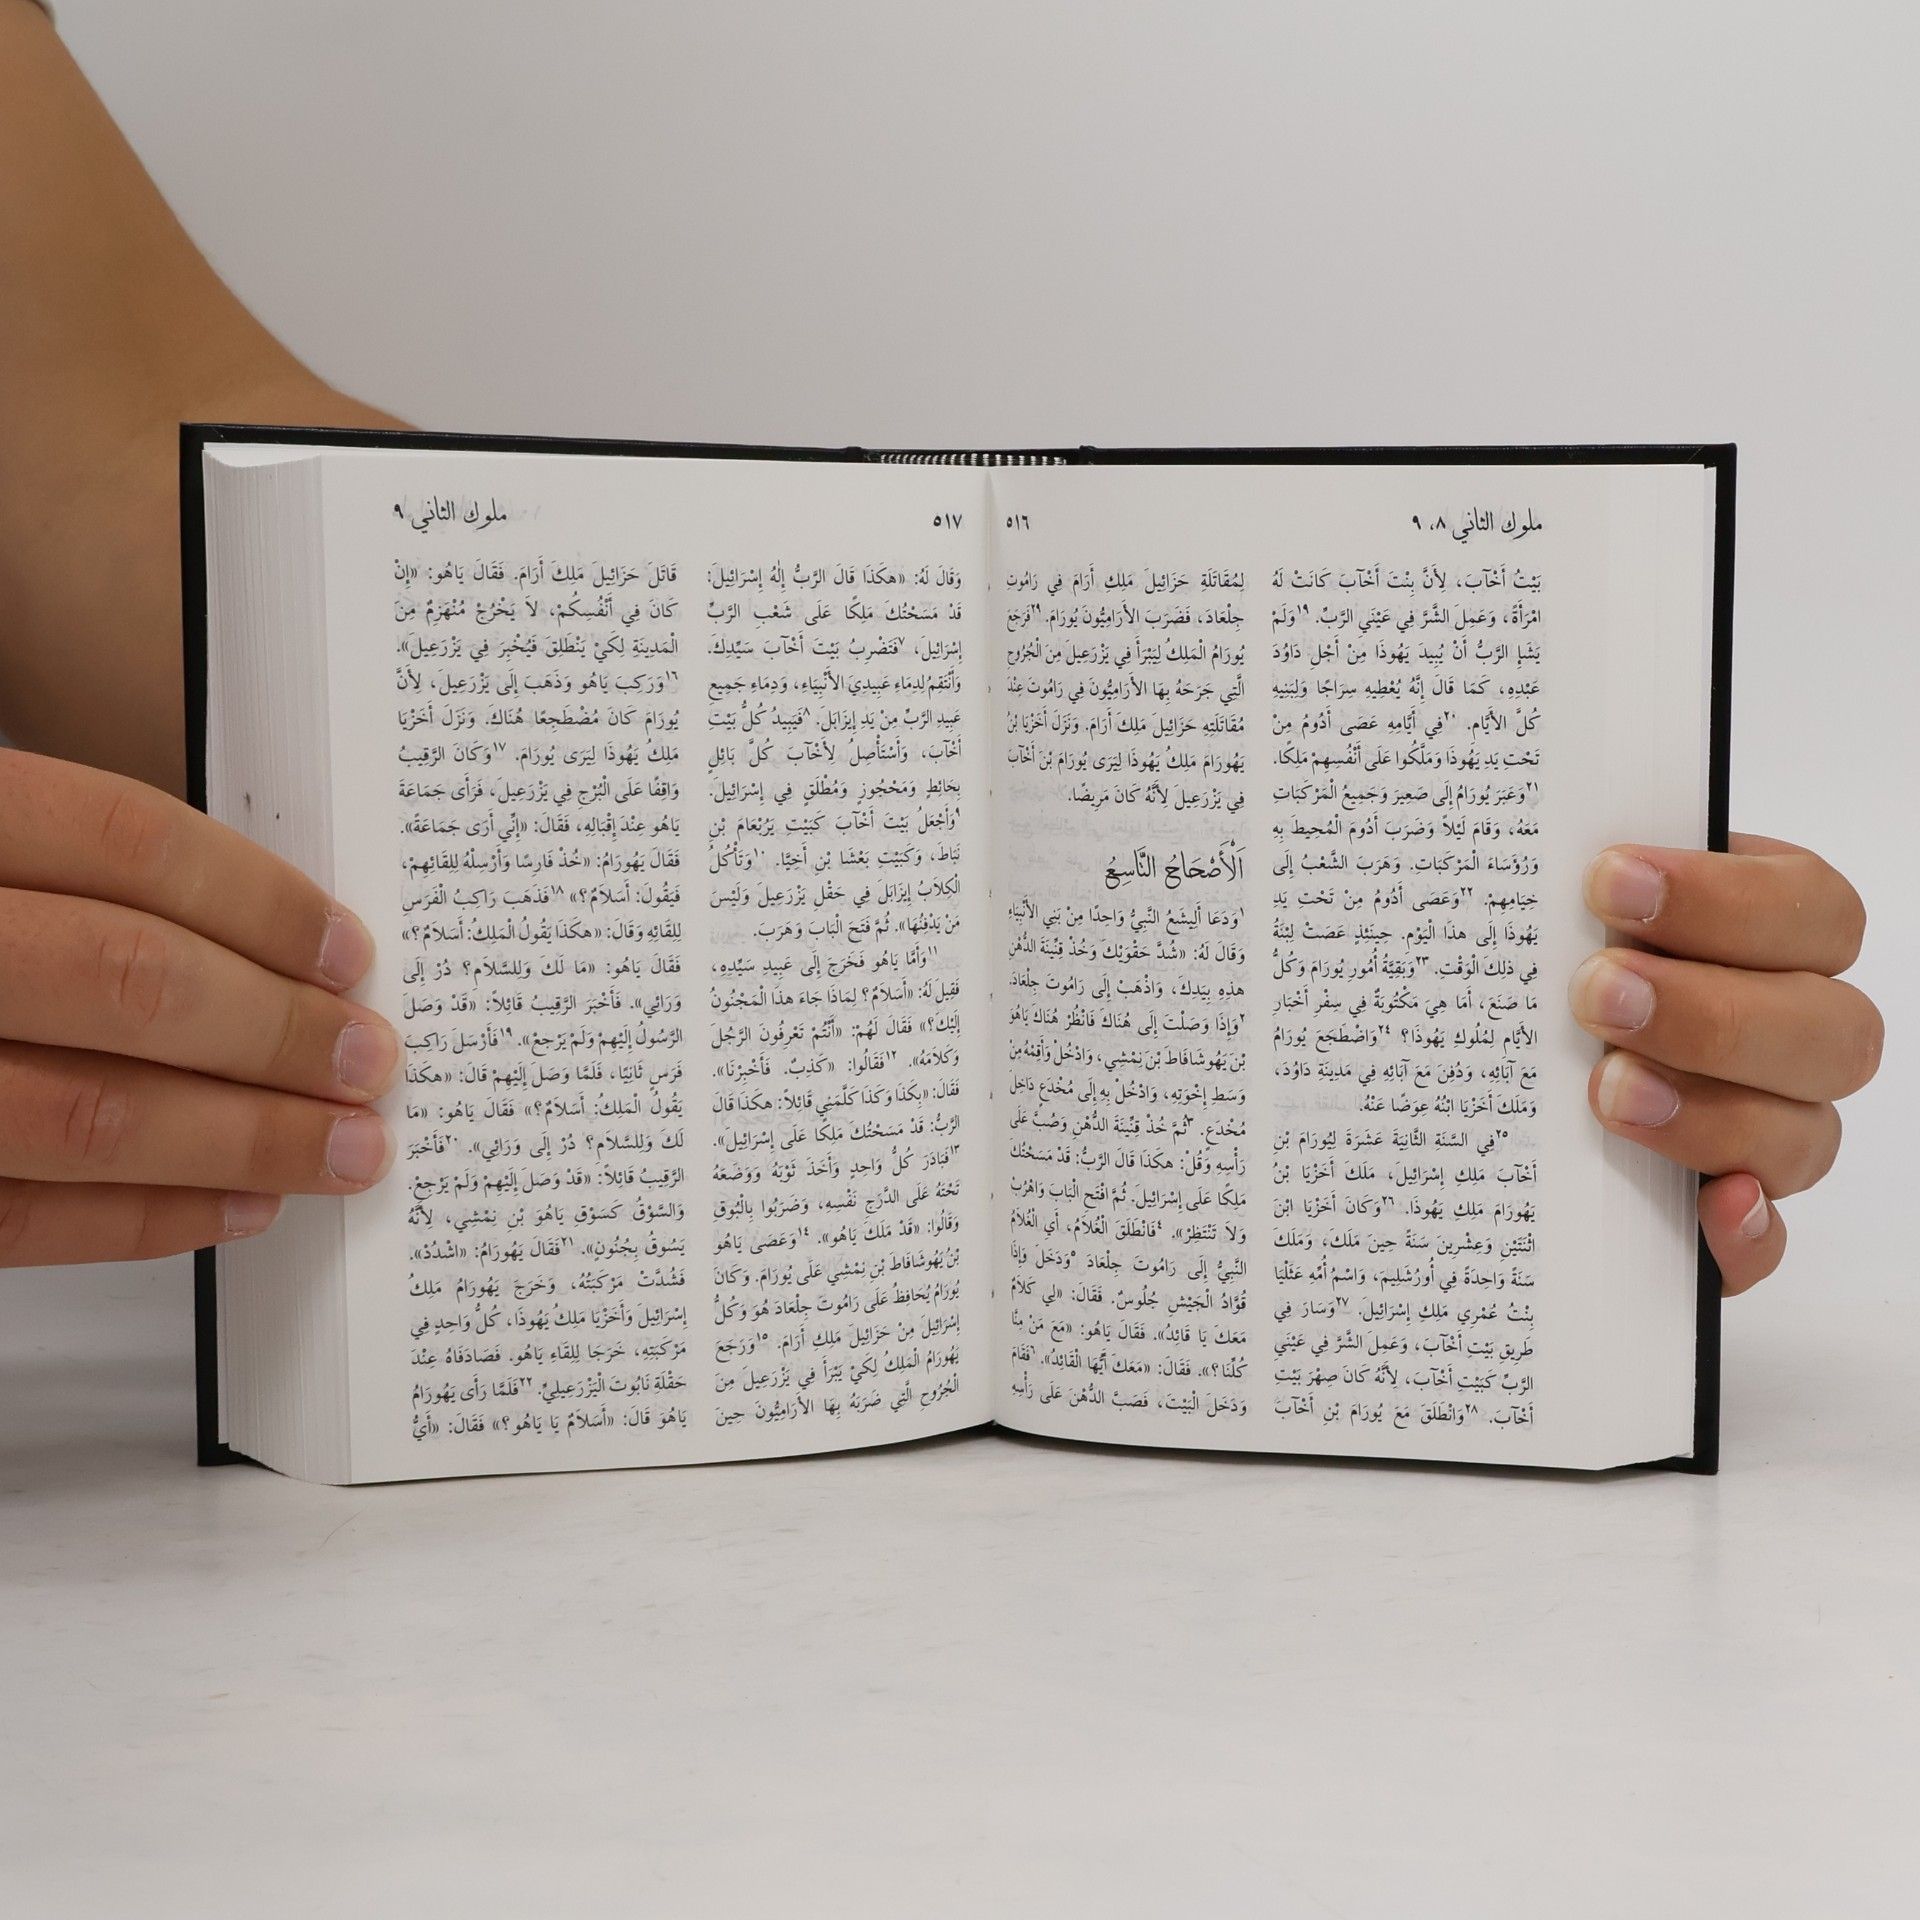 ملوك الثاني ٨، ٩
٥١٦
بَيْتُ أَخْآبَ، لِأَنَّ بِنْتَ أَخْآبَ كَانَتْ لَهُ
امْرَأَةً، وَعَمِلَ الشَّرَّ فِي عَيْنَيِ الرَّبِّ. ١٩وَلَمْ
يَشَإِ الرَّبُّ أَنْ يُبِيدَ يَهُوذَا مِنْ أَجْلِ دَاوُدَ
عَبْدِهِ، كَمَا قَالَ إِنَّهُ يُعْطِيهِ سِرَاجًا وَلِبَنِيهِ
كُلَّ الأَيَّامِ. ٢٠فِي أَيَّامِهِ عَصَى أَدُومُ مِنْ
تَحْتِ يَدِ يَهُوذَا وَمَلَّكُوا عَلَى أَنْفُسِهِمْ مَلِكًا.
٢١وَعَبَرَ يُورَامُ إِلَى صَعِيرَ وَجَمِيعُ الْمَرْكَبَاتِ
مَعَهُ، وَقَامَ لَيْلاً وَضَرَبَ أَدُومَ الْمُحِيطَ بِهِ
وَرُؤَسَاءَ الْمَرْكَبَاتِ. وَهَرَبَ الشَّعْبُ إِلَى
خِيَامِهِمْ. ٢٢وَعَصَى أَدُومُ مِنْ تَحْتِ يَدِ
يَهُوذَا إِلَى هذَا الْيَوْمِ. حِينَئِذٍ عَصَتْ لِبْنَةُ
فِي ذلِكَ الْوَقْتِ. ٢٣وَبَقِيَّةُ أُمُورِ يُورَامَ وَكُلُّ
مَا صَنَعَ، أَمَا هِيَ مَكْتُوبَةٌ فِي سِفْرِ أَخْبَارِ
الأَيَّامِ لِمُلُوكِ يَهُوذَا؟ ٢٤وَاضْطَجَعَ يُورَامُ
مَعَ آبَائِهِ، وَدُفِنَ مَعَ آبَائِهِ فِي مَدِينَةِ دَاوُدَ،
وَمَلَكَ أَخَزْيَا ابْنُهُ عِوَضًا عَنْهُ.
٢٥فِي السَّنَةِ الثَّانِيَةَ عَشَرَةَ لِيُورَامَ بْنِ
أَخْآبَ مَلِكِ إِسْرَائِيلَ، مَلَكَ أَخَزْيَا بْنُ
يَهُورَامَ مَلِكِ يَهُوذَا. ٢٦وَكَانَ أَخَزْيَا ابْنَ
اثْنَتَيْنِ وَعِشْرِينَ سَنَةً حِينَ مَلَكَ، وَمَلَكَ
سَنَةً وَاحِدَةً فِي أُورُشَلِيمَ، وَاسْمُ أُمِّهِ عَثَلْيَا
بِنْتُ عُمْرِي مَلِكِ إِسْرَائِيلَ. ٢٧وَسَارَ فِي
طَرِيقِ بَيْتِ أَخْآبَ، وَعَمِلَ الشَّرَّ فِي عَيْنَيِ
الرَّبِّ كَبَيْتِ أَخْآبَ، لِأَنَّهُ كَانَ صِهْرَ بَيْتِ
أَخْآبَ. ٢٨وَانْطَلَقَ مَعَ يُورَامَ بْنِ أَخْآبَ
لِمُقَاتَلَةِ حَزَائِيلَ مَلِكِ أَرَامَ فِي رَامُوتِ
جِلْعَادَ، فَضَرَبَ الأَرَامِيُّونَ يُورَامَ. ٢٩فَرَجَعَ
يُورَامُ الْمَلِكُ لِيَبْرَأَ فِي يَزْرَعِيلَ مِنَ الْجُرُوحِ
الَّتِي جَرَحَهُ بِهَا الأَرَامِيُّونَ فِي رَامُوتَ عِنْدَ
مُقَاتَلَتِهِ حَزَائِيلَ مَلِكَ أَرَامَ. وَنَزَلَ أَخَزْيَا بْنُ
يَهُورَامَ مَلِكُ يَهُوذَا لِيَرَى يُورَامَ بْنَ أَخْآبَ
فِي يَزْرَعِيلَ لِأَنَّهُ كَانَ مَرِيضًا.
اَلْأَصْحَاحُ التَّاسِعُ
١وَدَعَا أَلِيشَعُ النَّبِيُّ وَاحِدًا مِنْ بَنِي الأَنْبِيَاءِ
وَقَالَ لَهُ: «شُدَّ حَقْوَيْكَ وَخُذْ قِنِّينَةَ الدُّهْنِ
هذِهِ بِيَدِكَ، وَاذْهَبْ إِلَى رَامُوتَ جِلْعَادَ.
٢وَإِذَا وَصَلْتَ إِلَى هُنَاكَ فَانْظُرْ هُنَاكَ يَاهُوَ
بْنَ يَهُوشَافَاطَ بْنِ نِمْشِي، وَادْخُلْ وَأَقِمْهُ مِنْ
وَسَطِ إِخْوَتِهِ، وَادْخُلْ بِهِ إِلَى مُخْدَعٍ دَاخِلَ
مُخْدَعٍ. ٣ثُمَّ خُذْ قِنِّينَةَ الدُّهْنِ وَصُبَّ عَلَى
رَأْسِهِ وَقُلْ: هكَذَا قَالَ الرَّبُّ: قَدْ مَسَحْتُكَ
مَلِكًا عَلَى إِسْرَائِيلَ. ثُمَّ افْتَحِ الْبَابَ وَاهْرُبْ
وَلاَ تَنْتَظِرْ». ٤فَانْطَلَقَ الْغُلاَمُ، أَيِ الْغُلاَمُ
النَّبِيُّ إِلَى رَامُوتَ جِلْعَادَ ٥وَدَخَلَ وَإِذَا
قُوَّادُ الْجَيْشِ جُلُوسٌ. فَقَالَ: «لِي كَلاَمٌ
مَعَكَ يَا قَائِدُ». فَقَالَ يَاهُو: «مَعَ مَنْ مِنَّا
كُلِّنَا؟». فَقَالَ: «مَعَكَ أَيُّهَا الْقَائِدُ». ٦فَقَامَ
وَدَخَلَ الْبَيْتَ، فَصَبَّ الدُّهْنَ عَلَى رَأْسِهِ
٥١٧
ملوك الثاني ٩
وَقَالَ لَهُ: «هكَذَا قَالَ الرَّبُّ إِلهُ إِسْرَائِيلَ:
قَدْ مَسَحْتُكَ مَلِكًا عَلَى شَعْبِ الرَّبِّ
إِسْرَائِيلَ، ٧فَتَضْرِبُ بَيْتَ أَخْآبَ سَيِّدِكَ.
وَأَنْتَقِمُ لِدِمَاءِ عَبِيدِيَ الأَنْبِيَاءِ، وَدِمَاءِ جَمِيعِ
عَبِيدِ الرَّبِّ مِنْ يَدِ إِيزَابَلَ. ٨فَيَبِيدُ كُلُّ بَيْتِ
أَخْآبَ، وَأَسْتَأْصِلُ لِأَخْآبَ كُلَّ بَائِلٍ
بِحَائِطٍ وَمَحْجُوزٍ وَمُطْلَقٍ فِي إِسْرَائِيلَ.
٩وَأَجْعَلُ بَيْتَ أَخْآبَ كَبَيْتِ يَرُبْعَامَ بْنِ
نَبَاطَ، وَكَبَيْتِ بَعْشَا بْنِ أَخِيَّا. ١٠وَتَأْكُلُ
الْكِلاَبُ إِيزَابَلَ فِي حَقْلِ يَزْرَعِيلَ وَلَيْسَ
مَنْ يَدْفِنُهَا». ثُمَّ فَتَحَ الْبَابَ وَهَرَبَ.
١١وَأَمَّا يَاهُو فَخَرَجَ إِلَى عَبِيدِ سَيِّدِهِ،
فَقِيلَ لَهُ: «أَسَلاَمٌ؟ لِمَاذَا جَاءَ هذَا الْمَجْنُونُ
إِلَيْكَ؟» فَقَالَ لَهُمْ: «أَنْتُمْ تَعْرِفُونَ الرَّجُلَ
وَكَلاَمَهُ». ١٢فَقَالُوا: «كَذِبٌ. فَأَخْبِرْنَا».
فَقَالَ: «بِكَذَا وَكَذَا كَلَّمَنِي قَائِلاً: هكَذَا قَالَ
الرَّبُّ: قَدْ مَسَحْتُكَ مَلِكًا عَلَى إِسْرَائِيلَ».
١٣فَبَادَرَ كُلُّ وَاحِدٍ وَأَخَذَ ثَوْبَهُ وَوَضَعَهُ
تَحْتَهُ عَلَى الدَّرَجِ نَفْسِهِ، وَضَرَبُوا بِالْبُوقِ
وَقَالُوا: «قَدْ مَلَكَ يَاهُو». ١٤وَعَصَى يَاهُو
بْنُ يَهُوشَافَاطَ بْنِ نِمْشِي عَلَى يُورَامَ. وَكَانَ
يُورَامُ يُحَافِظُ عَلَى رَامُوتَ جِلْعَادَ هُوَ وَكُلُّ
إِسْرَائِيلَ مِنْ حَزَائِيلَ مَلِكِ أَرَامَ. ١٥وَرَجَعَ
يَهُورَامُ الْمَلِكُ لِكَيْ يَبْرَأَ فِي يَزْرَعِيلَ مِنَ
الْجُرُوحِ الَّتِي ضَرَبَهُ بِهَا الأَرَامِيُّونَ حِينَ
قَاتَلَ حَزَائِيلَ مَلِكَ أَرَامَ. فَقَالَ يَاهُو: «إِنْ
كَانَ فِي أَنْفُسِكُمْ، لاَ يَخْرُجْ مُنْهَزِمٌ مِنَ
الْمَدِينَةِ لِكَيْ يَنْطَلِقَ فَيُخْبِرَ فِي يَزْرَعِيلَ».
١٦وَرَكِبَ يَاهُو وَذَهَبَ إِلَى يَزْرَعِيلَ، لِأَنَّ
يُورَامَ كَانَ مُضْطَجِعًا هُنَاكَ. وَنَزَلَ أَخَزْيَا
مَلِكُ يَهُوذَا لِيَرَى يُورَامَ. ١٧وَكَانَ الرَّقِيبُ
وَاقِفًا عَلَى الْبُرْجِ فِي يَزْرَعِيلَ، فَرَأَى جَمَاعَةَ
يَاهُو عِنْدَ إِقْبَالِهِ، فَقَالَ: «إِنِّي أَرَى جَمَاعَةً».
فَقَالَ يَهُورَامُ: «خُذْ فَارِسًا وَأَرْسِلْهُ لِلِقَائِهِمْ،
فَيَقُولَ: أَسَلاَمٌ؟» ١٨فَذَهَبَ رَاكِبُ الْفَرَسِ
لِلِقَائِهِ وَقَالَ: «هكَذَا يَقُولُ الْمَلِكُ: أَسَلاَمٌ؟»
فَقَالَ يَاهُو: «مَا لَكَ وَلِلسَّلاَمِ؟ دُرْ إِلَى
وَرَائِي». فَأَخْبَرَ الرَّقِيبُ قَائِلاً: «قَدْ وَصَلَ
الرَّسُولُ إِلَيْهِمْ وَلَمْ يَرْجِعْ». ١٩فَأَرْسَلَ رَاكِبَ
فَرَسٍ ثَانِيًا، فَلَمَّا وَصَلَ إِلَيْهِمْ قَالَ: «هكَذَا
يَقُولُ الْمَلِكُ: أَسَلاَمٌ؟» فَقَالَ يَاهُو: «مَا
لَكَ وَلِلسَّلاَمِ؟ دُرْ إِلَى وَرَائِي». ٢٠فَأَخْبَرَ
الرَّقِيبُ قَائِلاً: «قَدْ وَصَلَ إِلَيْهِمْ وَلَمْ يَرْجِعْ.
وَالسَّوْقُ كَسَوْقِ يَاهُوَ بْنِ نِمْشِي، لِأَنَّهُ
يَسُوقُ بِجُنُونٍ». ٢١فَقَالَ يَهُورَامُ: «اشْدُدْ».
فَشُدَّتْ مَرْكَبَتُهُ، وَخَرَجَ يَهُورَامُ مَلِكُ
إِسْرَائِيلَ وَأَخَزْيَا مَلِكُ يَهُوذَا، كُلُّ وَاحِدٍ فِي
مَرْكَبَتِهِ، خَرَجَا لِلِقَاءِ يَاهُو. فَصَادَفَاهُ عِنْدَ
حَقْلَةِ نَابُوتَ الْيَزْرَعِيلِيِّ. ٢٢فَلَمَّا رَأَى يَهُورَامُ
يَاهُوَ قَالَ: «أَسَلاَمٌ يَا يَاهُو؟» فَقَالَ: «أَيُّ